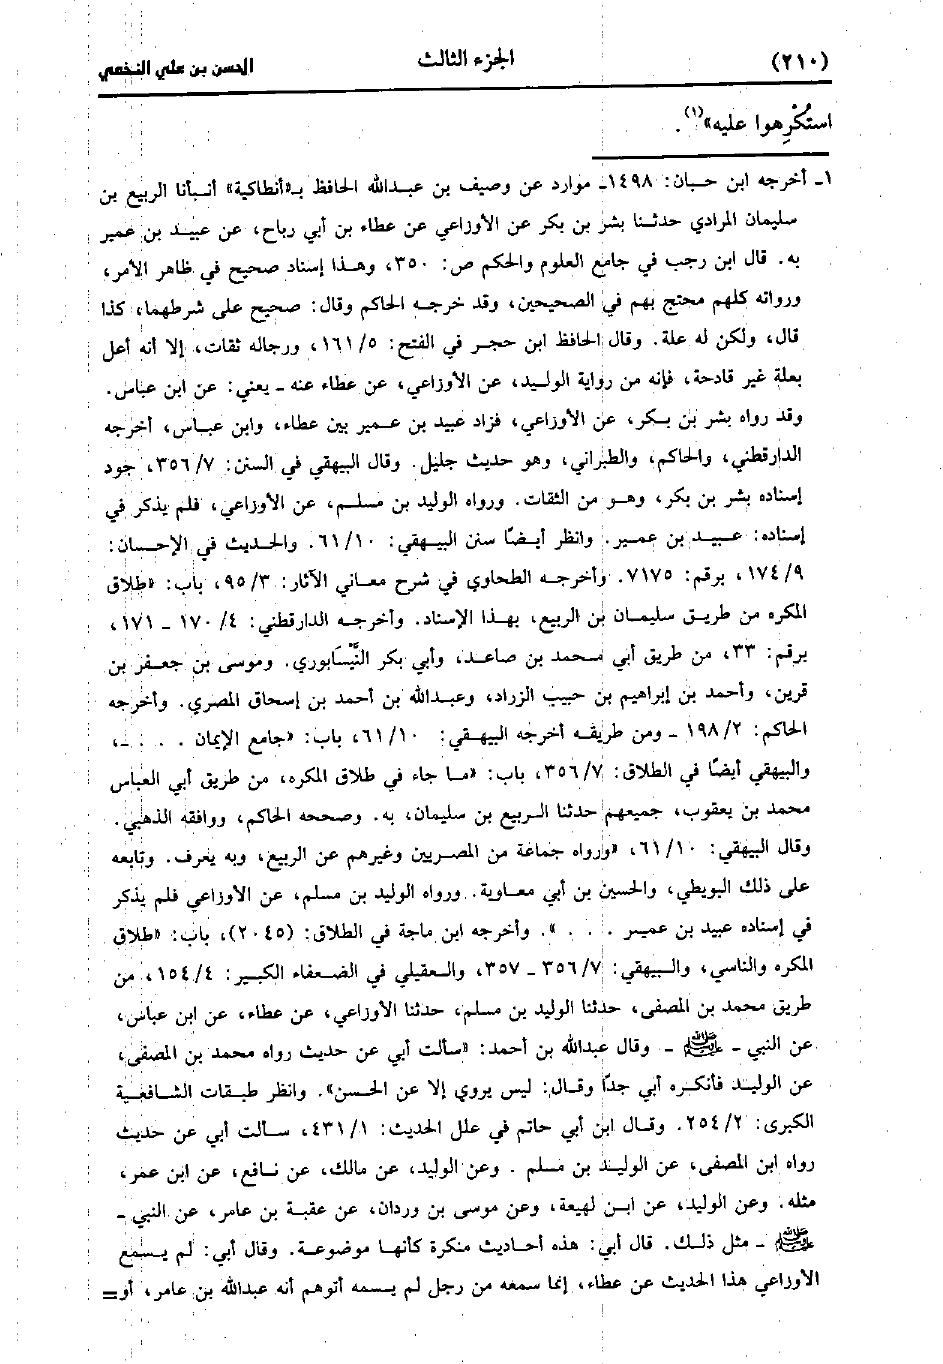 (٢١٠) الجزء الثالث الحسن بن علي النخعي
استُكْرِهوا عليه»(١).
١ـ أخرجه ابن حبان: ١٤٩٨ـ موارد عن وصيف بن عبدالله الحافظ بـ«أنطاكية» أنبأنا الربيع بن
سليمان المرادي حدثنا بشر بن بكر عن الأوزاعي عن عطاء بن أبي رباح، عن عبيد بن عمير
به. قال ابن رجب في جامع العلوم والحكم ص: ٣٥٠، وهذا إسناد صحيح في ظاهر الأمر،
ورواته كلهم محتج بهم في الصحيحين، وقد خرجه الحاكم وقال: صحيح على شرطهما، كذا
قال، ولكن له علة. وقال الحافظ ابن حجر في الفتح: ١٦١/٥، ورجاله ثقات، إلا أنه أعل
بعلة غير قادحة، فإنه من رواية الوليد، عن الأوزاعي، عن عطاء عنه ـ يعني: عن ابن عباس.
وقد رواه بشر بن بكر، عن الأوزاعي، فزاد عبيد بن عمير بين عطاء، وابن عباس، أخرجه
الدارقطني، والحاكم، والطبراني، وهو حديث جليل. وقال البيهقي في السنن: ٣٥٦/٧، جود
إسناده بشر بن بكر، وهو من الثقات. ورواه الوليد بن مسلم، عن الأوزاعي، فلم يذكر في
إسناده: عبيد بن عمير. وانظر أيضًا سنن البيهقي: ٦١/١٠. والحديث في الإحسان:
١٧٤/٩، برقم: ٧١٧٥. وأخرجه الطحاوي في شرح معاني الآثار: ٩٥/٣، باب: «طلاق
المكره من طريق سليمان بن الربيع، بهذا الإسناد. وأخرجه الدارقطني: ١٧٠/٤ ـ ١٧١،
برقم: ٣٣، من طريق أبي محمد بن صاعد، وأبي بكر النَّيْسَابوري. وموسى بن جعفر بن
قرين، وأحمد بن إبراهيم بن حبيب الزراد، وعبدالله بن أحمد بن إسحاق المصري. وأخرجه
الحاكم: ١٩٨/٢ ـ ومن طريقه أخرجه البيهقي: ٦١/١٠، باب: «جامع الإيمان . . . ـ،
والبيهقي أيضًا في الطلاق: ٣٥٦/٧، باب: «ما جاء في طلاق المكره، من طريق أبي العباس
محمد بن يعقوب، جميعهم حدثنا الربيع بن سليمان، به. وصححه الحاكم، ووافقه الذهبي.
وقال البيهقي: ٦١/١٠، «ورواه جماعة من المصريين وغيرهم عن الربيع، وبه يعرف. وتابعه
على ذلك البويطي، والحسين بن أبي معاوية. ورواه الوليد بن مسلم، عن الأوزاعي فلم يذكر
في إسناده عبيد بن عمير . . . ». وأخرجه ابن ماجة في الطلاق: (٢٠٤٥)، باب: «طلاق
المكره والناسي، والبيهقي: ٣٥٦/٧ ـ ٣٥٧، والعقيلي في الضعفاء الكبير: ١٥٤/٤، من
طريق محمد بن المصفى، حدثنا الوليد بن مسلم، حدثنا الأوزاعي، عن عطاء، عن ابن عباس،
عن النبي ـ ﷺ ـ وقال عبدالله بن أحمد: «سألت أبي عن حديث رواه محمد بن المصفى،
عن الوليد فأنكره أبي جدًا وقال: ليس يروي إلا عن الحسن». وانظر طبقات الشافعية
الكبرى: ٢٥٤/٢. وقال ابن أبي حاتم في علل الحديث: ٤٣١/١، سألت أبي عن حديث
رواه ابن المصفى، عن الوليد بن مسلم . وعن الوليد، عن مالك، عن نافع، عن ابن عمر،
مثله. وعن الوليد، عن ابن لهيعة، وعن موسى بن وردان، عن عقبة بن عامر، عن النبي ـ
ﷺ ـ مثل ذلك. قال أبي: هذه أحاديث منكرة كأنها موضوعة. وقال أبي: لم يسمع
الأوزاعي هذا الحديث عن عطاء، إنما سمعه من رجل لم يسمه أتوهم أنه عبدالله بن عامر، أو=